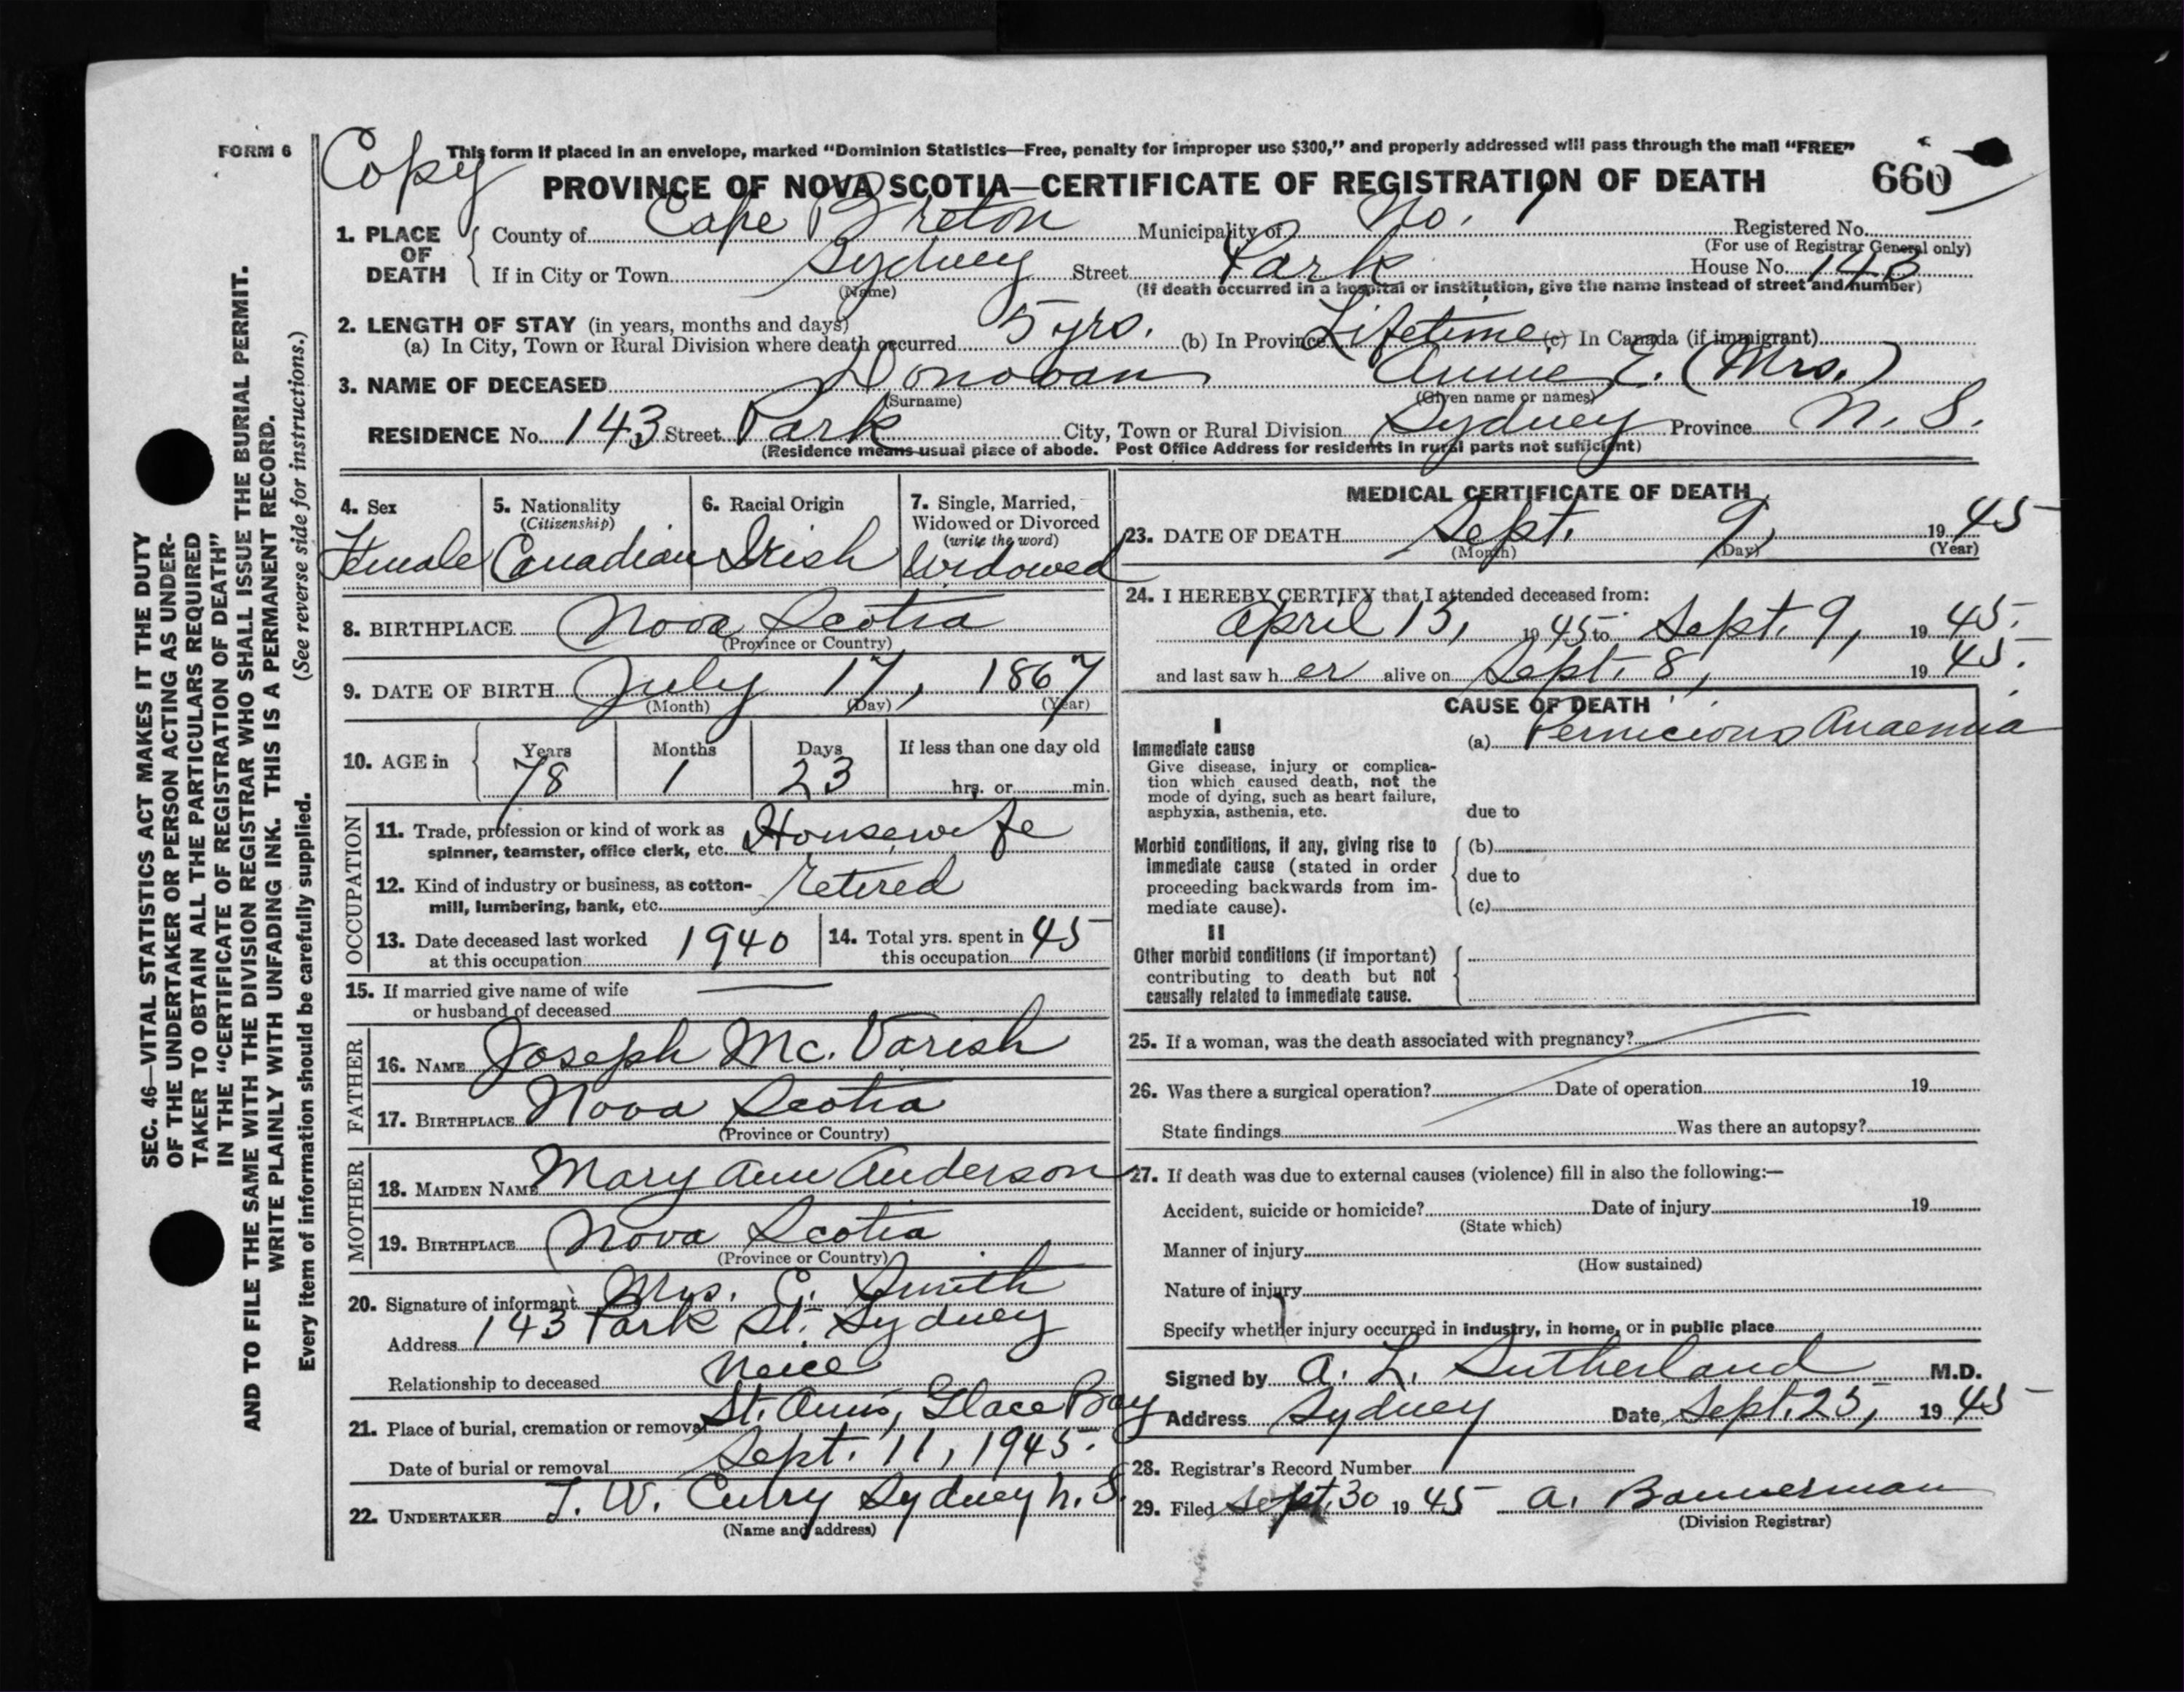 FORM 6
Copy
This form if placed in an envelope, marked "Dominion Statistics—Free, penalty for improper use $300," and properly addressed will pass through the mail "FREE"
PROVINCE OF NOVA SCOTIA—CERTIFICATE OF REGISTRATION OF DEATH 660
1. PLACE OF DEATH County of Cape Breton Municipality of No. 1 Registered No.
(For use of Registrar General only)
If in City or Town Sydney Street Park House No. 143
(Name) (If death occurred in a hospital or institution, give the name instead of street and number)
2. LENGTH OF STAY (in years, months and days)
(a) In City, Town or Rural Division where death occurred 5 yrs. (b) In Province Lifetime (c) In Canada (if immigrant)
3. NAME OF DECEASED Donovan Annie E. (Mrs.)
(Surname) (Given name or names)
RESIDENCE No. 143 Street Park City, Town or Rural Division Sydney Province N. S.
(Residence means usual place of abode. Post Office Address for residents in rural parts not sufficient)
4. Sex 5. Nationality 6. Racial Origin 7. Single, Married,
(Citizenship) Widowed or Divorced
(write the word)
Female Canadian Irish Widowed
8. BIRTHPLACE Nova Scotia
(Province or Country)
9. DATE OF BIRTH July 17, 1867
(Month) (Day) (Year)
10. AGE in Years Months Days If less than one day old
78 1 23 hrs. or min.
OCCUPATION
11. Trade, profession or kind of work as Housewife
spinner, teamster, office clerk, etc.
12. Kind of industry or business, as cotton- retired
mill, lumbering, bank, etc.
13. Date deceased last worked 1940 14. Total yrs. spent in 45
at this occupation this occupation
15. If married give name of wife —
or husband of deceased
FATHER
16. NAME Joseph Mc. Varish
17. BIRTHPLACE Nova Scotia
(Province or Country)
MOTHER
18. MAIDEN NAME Mary Ann Anderson
19. BIRTHPLACE Nova Scotia
(Province or Country)
20. Signature of informant Mrs. C. Smith
Address 143 Park St. Sydney
Relationship to deceased Neice
21. Place of burial, cremation or removal St. Anns, Glace Bay
Date of burial or removal Sept. 11, 1945.
22. UNDERTAKER T. W. Curry Sydney N. S.
(Name and address)
MEDICAL CERTIFICATE OF DEATH
23. DATE OF DEATH Sept. 9, 19 45
(Month) (Day) (Year)
24. I HEREBY CERTIFY that I attended deceased from:
April 13, 19 45 to Sept. 9, 19 45.
and last saw h er alive on Sept. 8, 19 45.
CAUSE OF DEATH
I
Immediate cause (a) Pernicious Anaemia
Give disease, injury or complica-
tion which caused death, not the
mode of dying, such as heart failure,
asphyxia, asthenia, etc. due to
Morbid conditions, if any, giving rise to (b)
immediate cause (stated in order due to
proceeding backwards from im-
mediate cause). (c)
II
Other morbid conditions (if important)
contributing to death but not
causally related to immediate cause.
25. If a woman, was the death associated with pregnancy?
26. Was there a surgical operation? Date of operation 19
State findings Was there an autopsy?
27. If death was due to external causes (violence) fill in also the following:—
Accident, suicide or homicide? Date of injury 19
(State which)
Manner of injury
(How sustained)
Nature of injury
Specify whether injury occurred in industry, in home, or in public place
Signed by A. L. Sutherland M.D.
Address Sydney Date Sept. 25, 19 45
28. Registrar's Record Number
29. Filed Sept. 30 19 45 A. Bannerman
(Division Registrar)
SEC. 46—VITAL STATISTICS ACT MAKES IT THE DUTY
OF THE UNDERTAKER OR PERSON ACTING AS UNDER-
TAKER TO OBTAIN ALL THE PARTICULARS REQUIRED
IN THE "CERTIFICATE OF REGISTRATION OF DEATH"
AND TO FILE THE SAME WITH THE DIVISION REGISTRAR WHO SHALL ISSUE THE BURIAL PERMIT.
WRITE PLAINLY WITH UNFADING INK. THIS IS A PERMANENT RECORD.
(See reverse side for instructions.)
Every item of information should be carefully supplied.